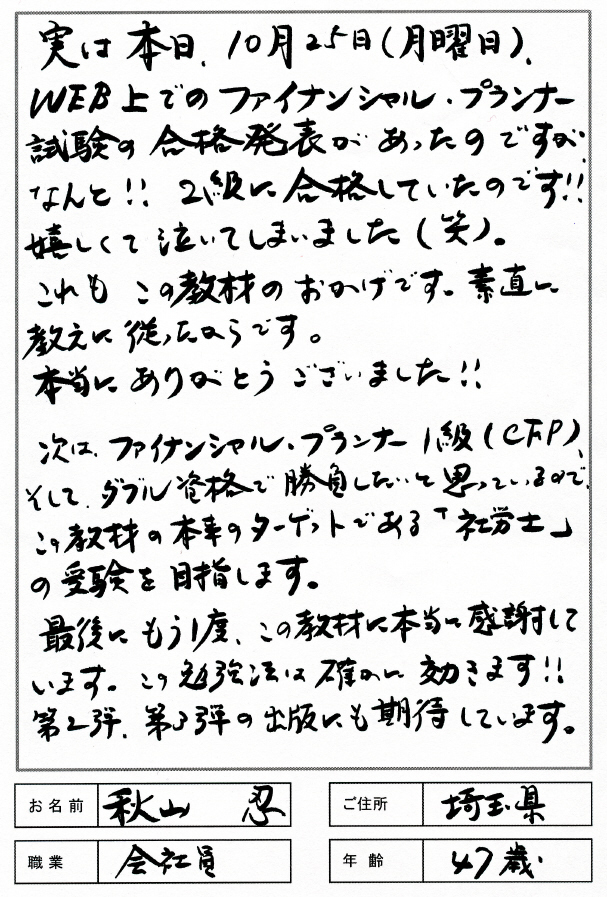 実は本日、10月25日(月曜日)、
WEB上でのファイナンシャル・プランナー
試験の合格発表があったのですが、
なんと!! 2級に合格していたのです!!
嬉しくて泣いてしまいました(笑)。
これもこの教材のおかげです。素直に
教えに従ったからです。
本当にありがとうございました!!
次は、ファイナンシャル・プランナー1級(CFP)、
そして、ダブル資格で勝負したいと思っているので、
この教材の本来のターゲットである「社労士」
の受験を目指します。
最後にもう1度、この教材に本当に感謝して
います。この勉強法は確かに効きます!!
第2弾、第3弾の出版にも期待しています。
お名前 秋山 忍
ご住所 埼玉県
職業 会社員
年齢 47歳